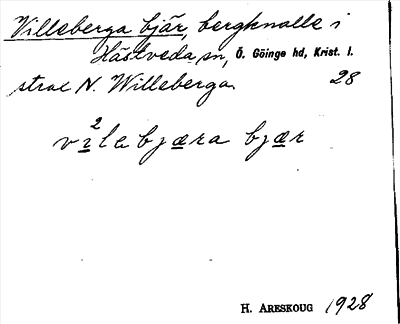 Villeberga bjär, bergknalle i
Hästveda sn, Ö. Göinge hd, Krist. l.
strax N. Willeberga. 28
v2ilebjæra bjær
H. ARESKOUG 1928